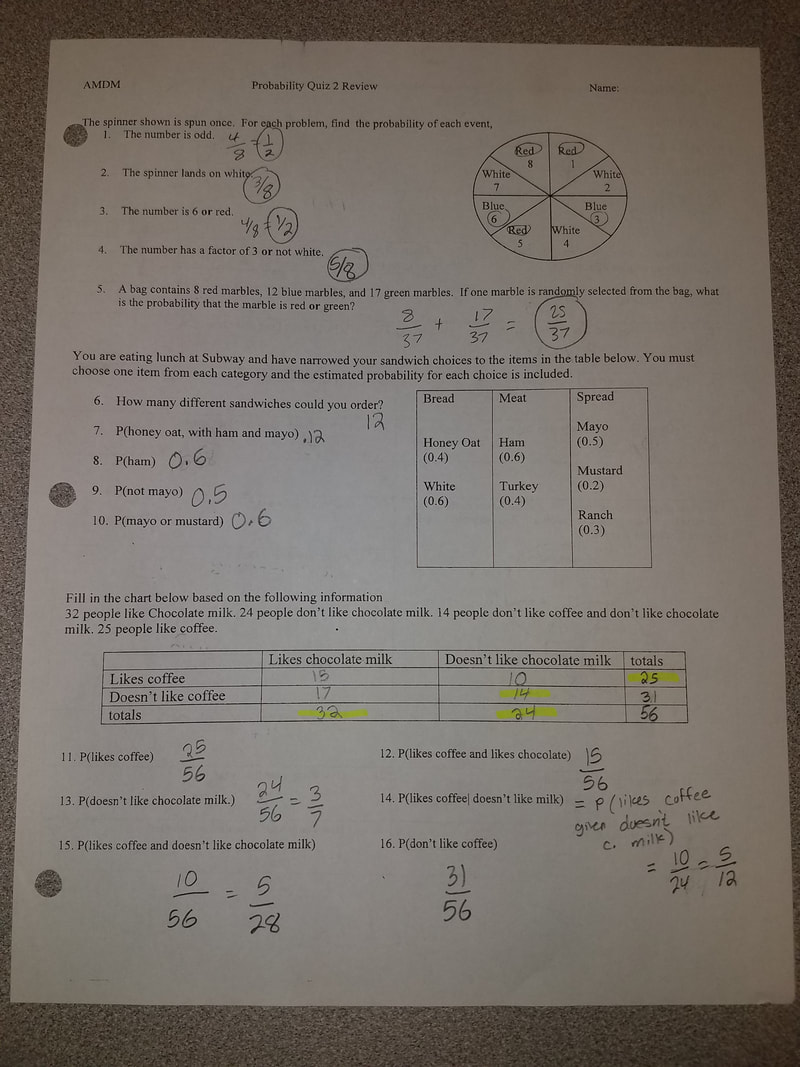 AMDM Probability Quiz 2 Review Name:
The spinner shown is spun once. For each problem, find the probability of each event,
1. The number is odd. 4/8 = 1/2
2. The spinner lands on white. 3/8
3. The number is 6 or red. 4/8 = 1/2
4. The number has a factor of 3 or not white. 5/8
Red 8
Red 1
White 7
White 2
Blue 6
Blue 3
Red 5
White 4
5. A bag contains 8 red marbles, 12 blue marbles, and 17 green marbles. If one marble is randomly selected from the bag, what
is the probability that the marble is red or green?
8/37 + 17/37 = 25/37
You are eating lunch at Subway and have narrowed your sandwich choices to the items in the table below. You must
choose one item from each category and the estimated probability for each choice is included.
6. How many different sandwiches could you order?
12
7. P(honey oat, with ham and mayo) .12
8. P(ham) 0.6
9. P(not mayo) 0.5
10. P(mayo or mustard) 0.6
Bread Meat Spread
Mayo
Honey Oat Ham (0.5)
(0.4) (0.6)
Mustard
White Turkey (0.2)
(0.6) (0.4)
Ranch
(0.3)
Fill in the chart below based on the following information
32 people like Chocolate milk. 24 people don't like chocolate milk. 14 people don't like coffee and don't like chocolate
milk. 25 people like coffee.
Likes chocolate milk Doesn't like chocolate milk totals
Likes coffee 15 10 25
Doesn't like coffee 17 14 31
totals 32 24 56
11. P(likes coffee) 25/56
12. P(likes coffee and likes chocolate) 15/56
13. P(doesn't like chocolate milk.) 24/56 = 3/7
14. P(likes coffee| doesn't like milk) = P(likes coffee
given doesn't like
c. milk)
= 10/24 = 5/12
15. P(likes coffee and doesn't like chocolate milk)
10/56 = 5/28
16. P(don't like coffee)
31/56